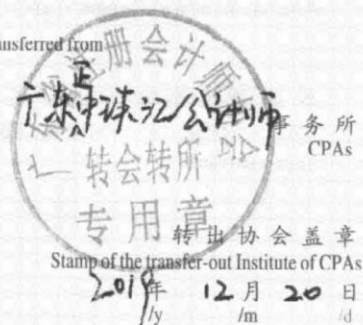 Transferred from
广东正中珠江会计师事务所
CPAs
广东省注册会计师协会
转会转所
专用章
转出协会盖章
Stamp of the transfer-out Institute of CPAs
2019年 12月 20日
/y /m /d